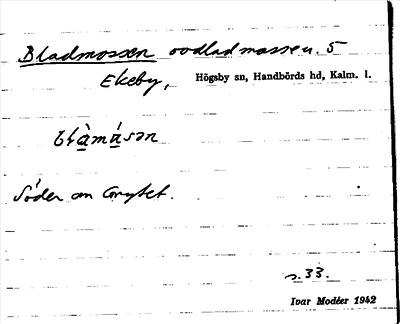 Bladmossen oodlad mosse u. 5
Ekeby, Högsby sn, Handbörds hd, Kalm. l.
blàmúsən
Söder om Grytet.
s. 33.
Ivar Modéer 1942